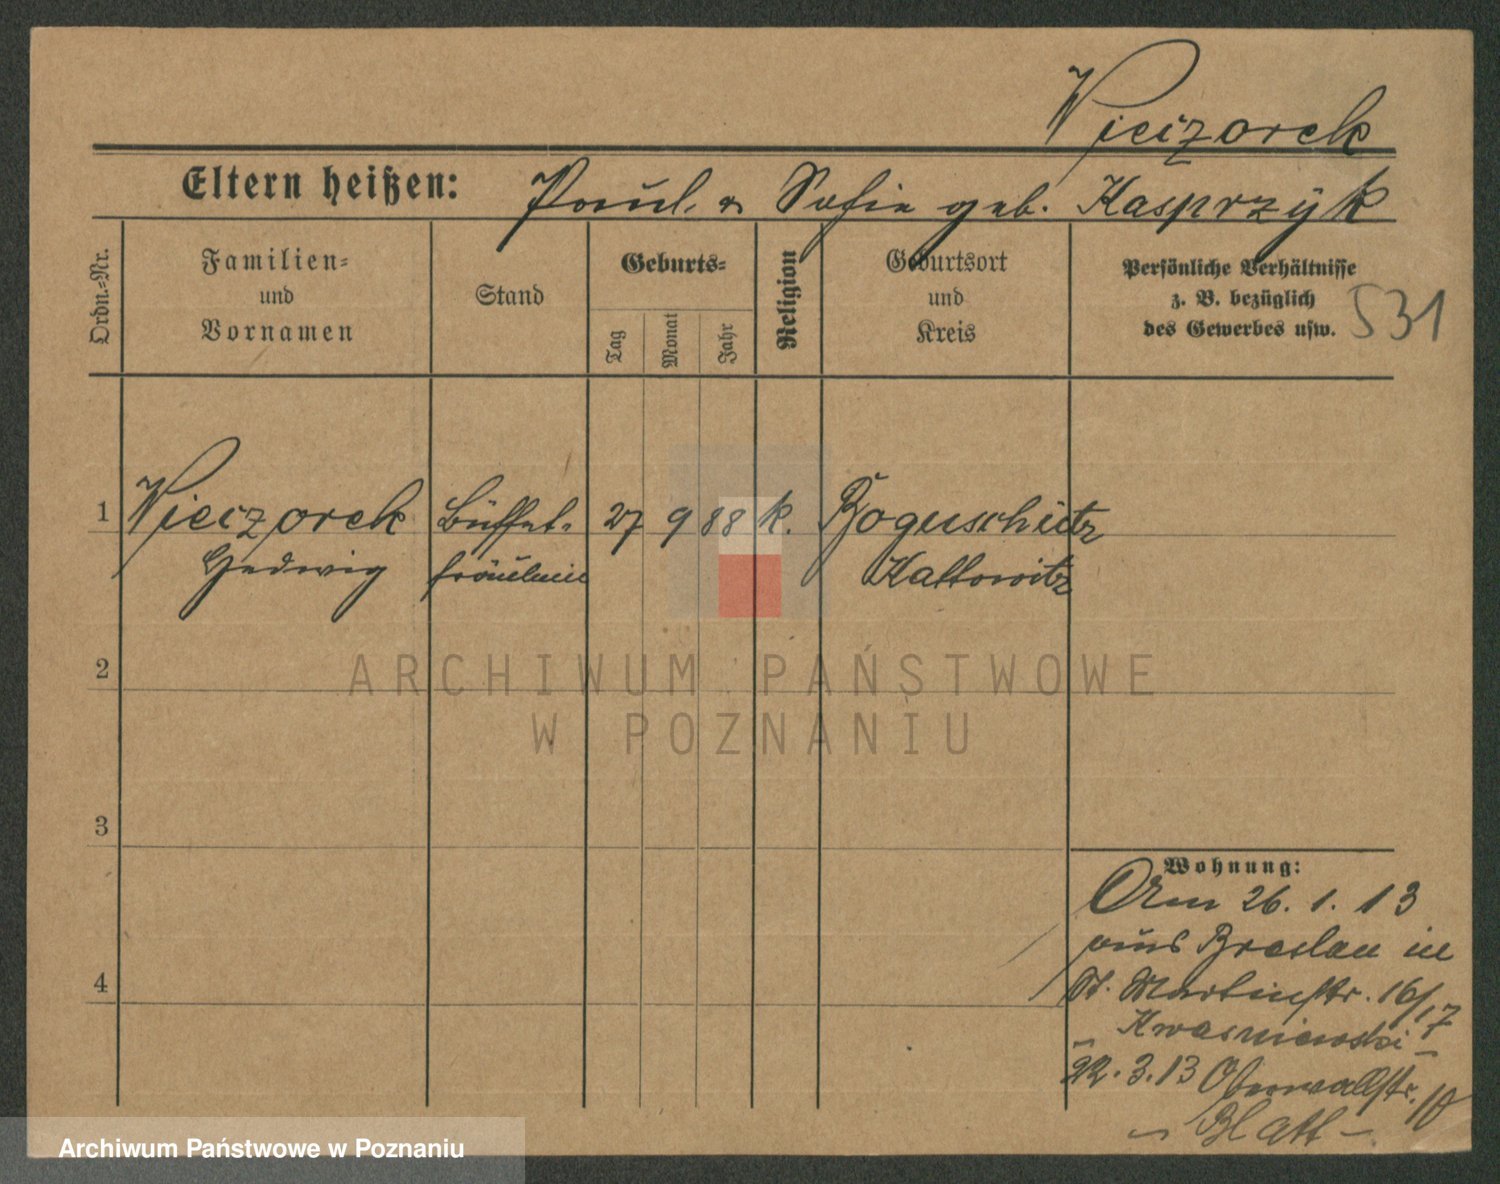 Wieczorek
Eltern heißen: Paul u Sofie geb. Kasprzýk
Ordn.=Nr.
Familien=
und
Vornamen
Stand
Geburts=
Tag
Monat
Jahr
Religion
Geburtsort
und
Kreis
Persönliche Verhältnisse
z. B. bezüglich
des Gewerbes usw.
531
1 Wieczorek Büffet- 27 9 88 k. Boguschütz
Hedwig fräulein Kattowitz
2
3
4
Wohnung:
Am 26. 1. 13
aus Breslau in
St. Martinstr. 16/17
- Kwasniewski -
22. 3. 13 Oberwallstr. 10
- Blatt -
ARCHIWUM PAŃSTWOWE
W POZNANIU
Archiwum Państwowe w Poznaniu